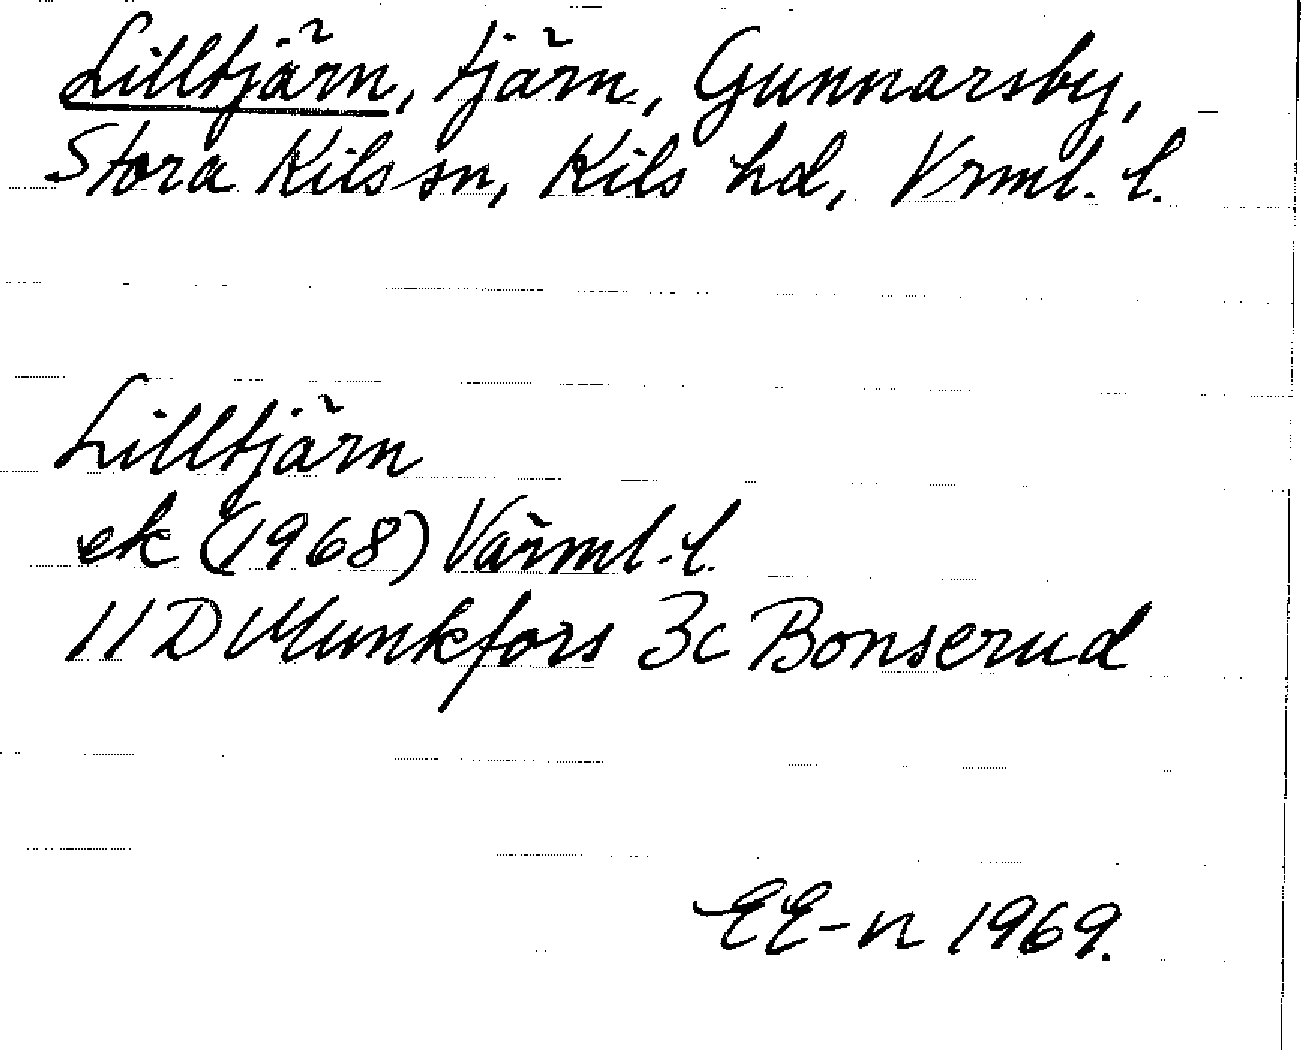 Lilltjärn, tjärn, Gunnarsby,
Stora Kils sn, Kils hd, Vrml. l.
Lilltjärn
ek (1968) Värml. l.
11 D Munkfors 3c Bonserud
EE-n 1969.